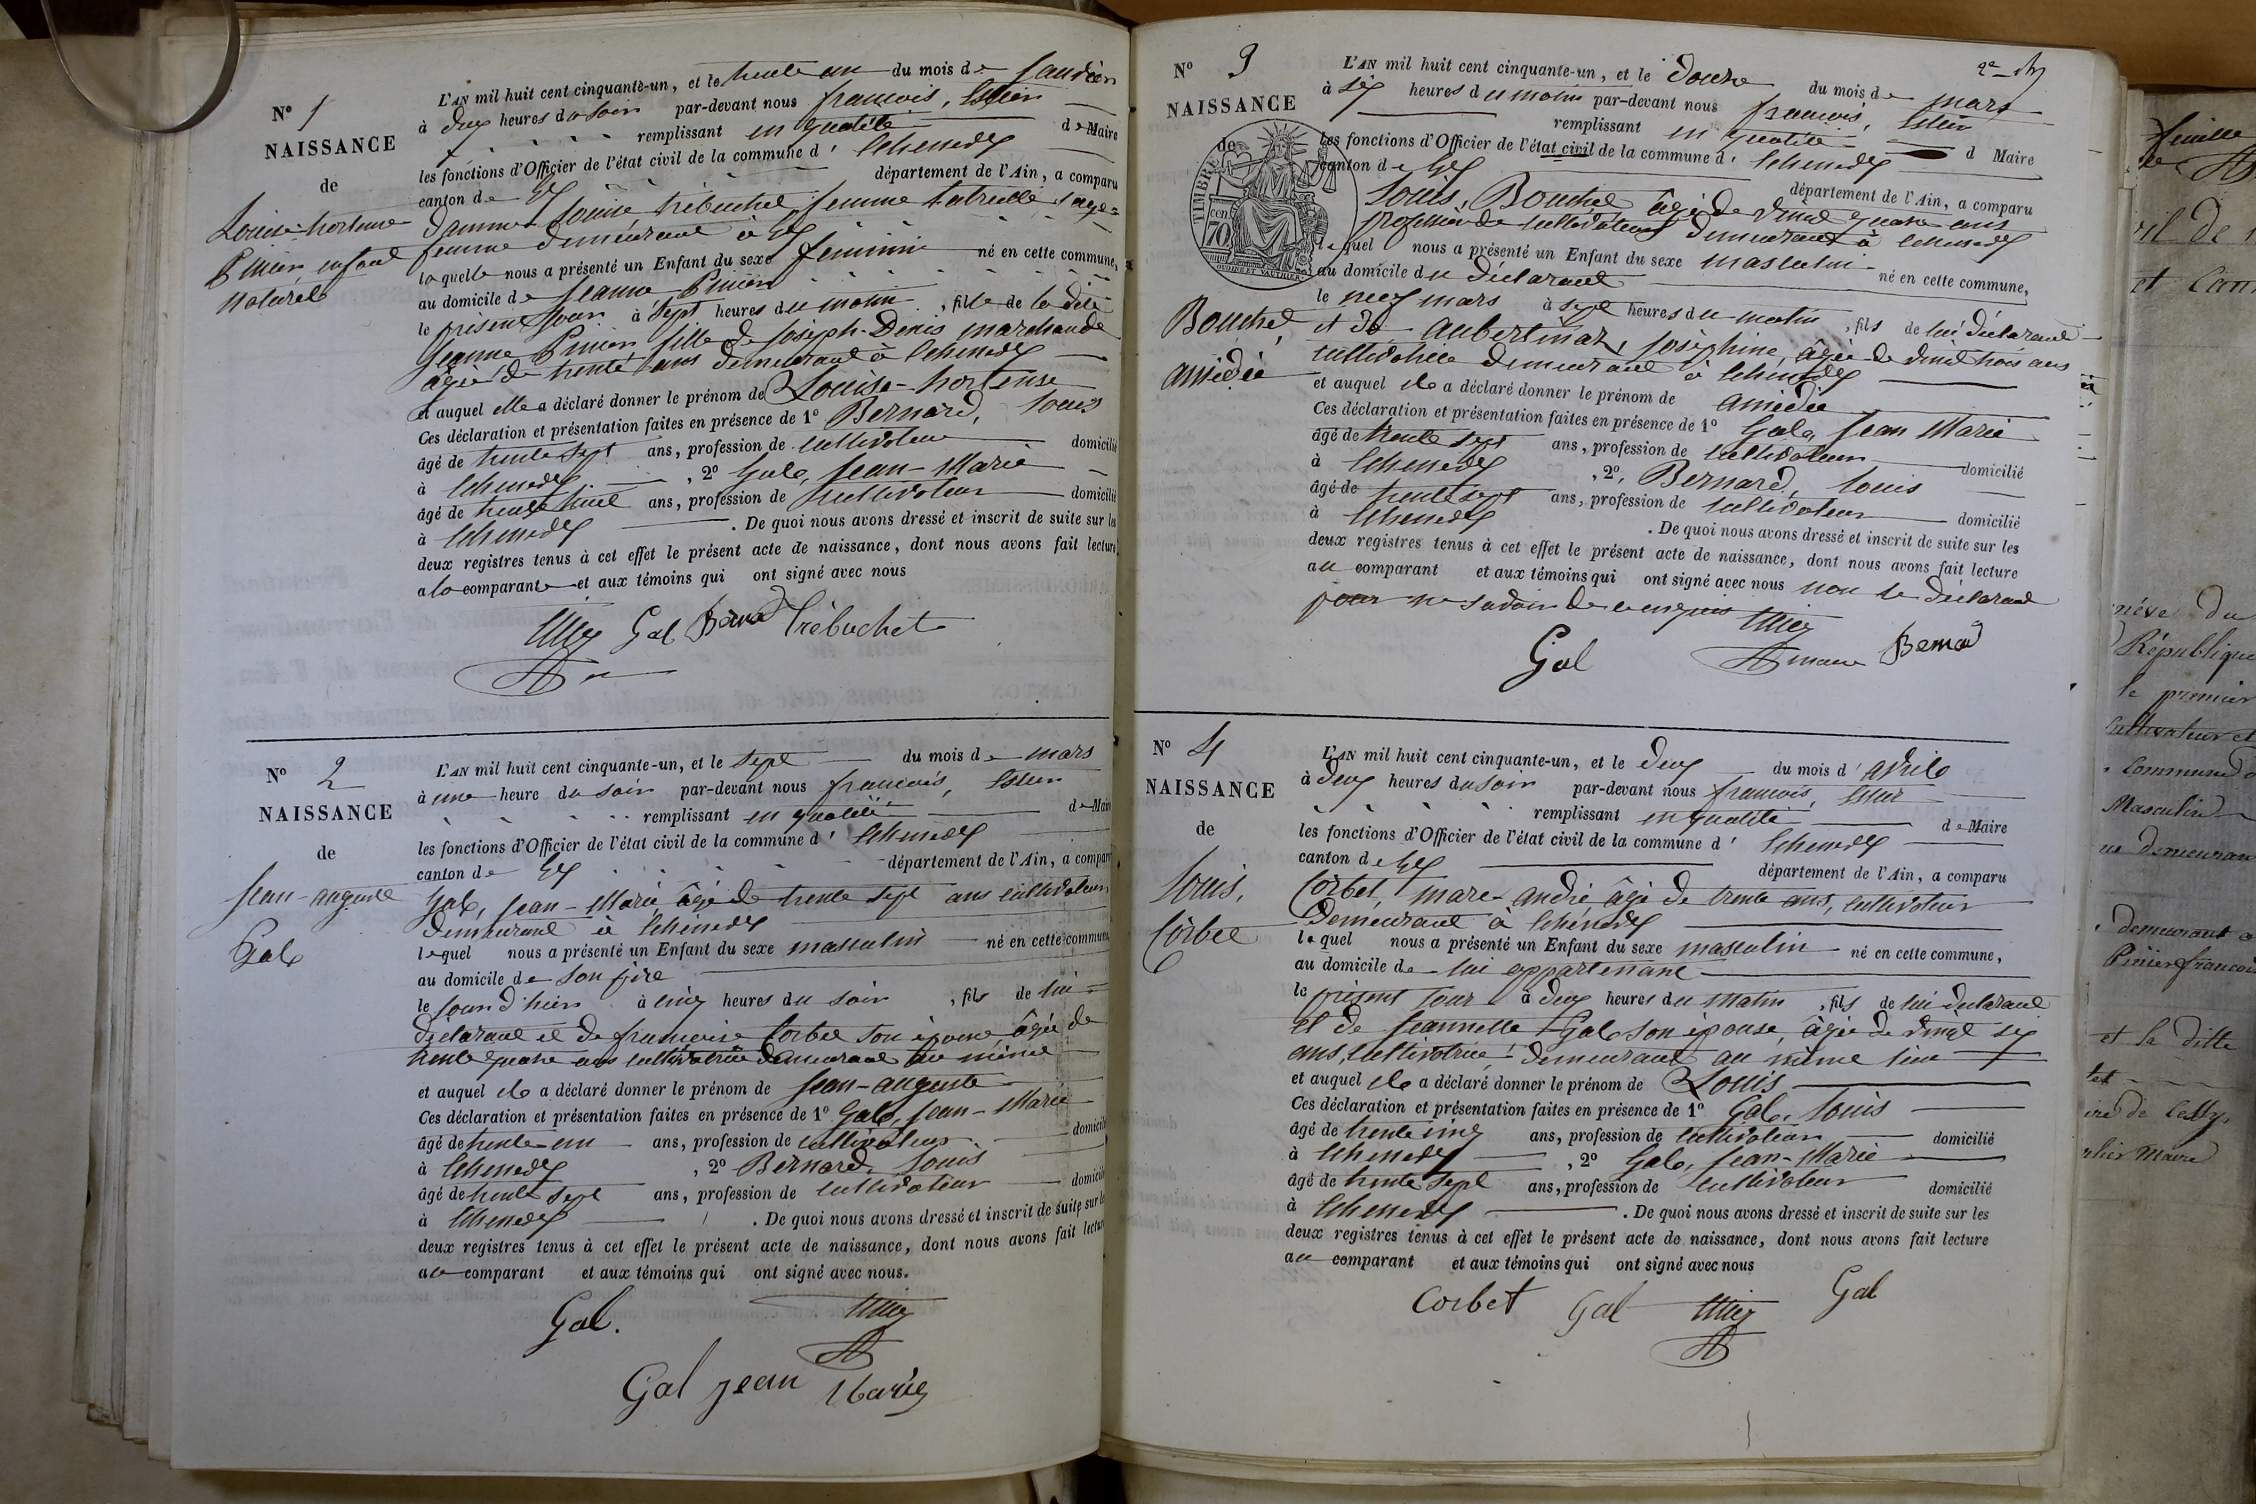 N° 1
NAISSANCE
de
Louise-hortense
Pinier enfant
naturel
L'AN mil huit cent cinquante-un, et le trente un du mois de janvier
à deux heures du soir par-devant nous francois,
remplissant en qualité de Maire
les fonctions d'Officier de l'état civil de la commune d' Echenevex
canton de Gex département de l'Ain, a comparu
damme Louise trébuchet femme sage=
femme demeurant à Gex
laquelle nous a présenté un Enfant du sexe féminin né en cette commune,
au domicile de Jeanne Pinier
le présent jour à sept heures du matin, fille de la dite
Jeanne Pinier fille de Joseph-Denis marchande
âgée de trente ans demeurant à Echenevex
et auquel elle a déclaré donner le prénom de Louise-hortense
Ces déclaration et présentation faites en présence de 1° Bernard, Louis
âgé de trente sept ans, profession de cultivateur domicilié
à Echenevex, 2° Gal, Jean-Marie
âgé de trente huit ans, profession de cultivateur domicilié
à Echenevex. De quoi nous avons dressé et inscrit de suite sur les
deux registres tenus à cet effet le présent acte de naissance, dont nous avons fait lecture
a la comparante et aux témoins qui ont signé avec nous
Gal Bernard Trébuchet
N° 2
NAISSANCE
de
Jean-auguste
Gal
L'AN mil huit cent cinquante-un, et le sept du mois de mars
à une heure du soir par-devant nous francois,
remplissant en qualité de Maire
les fonctions d'Officier de l'état civil de la commune d' Echenevex
canton de Gex département de l'Ain, a comparu
Gal, Jean-Marie âgé de trente sept ans cultivateur
demeurant à Echenevex
lequel nous a présenté un Enfant du sexe masculin né en cette commune,
au domicile de son père
le jour d'hier à cinq heures du soir, fils de lui
déclarant et de francoise Corbet son épouse, âgée de
trente quatre ans cultivatrice demeurant au même
et auquel il a déclaré donner le prénom de Jean-auguste
Ces déclaration et présentation faites en présence de 1° Gal, Jean-Marie
âgé de trente-un ans, profession de cultivateur domicilié
à Echenevex, 2° Bernard, Louis
âgé de trente sept ans, profession de cultivateur domicilié
à Echenevex. De quoi nous avons dressé et inscrit de suite sur les
deux registres tenus à cet effet le présent acte de naissance, dont nous avons fait lecture
au comparant et aux témoins qui ont signé avec nous.
Gal.
Gal jean Marie
N° 3
NAISSANCE
de
TIMBRE
cen
70
Bouchet
amédée
L'AN mil huit cent cinquante-un, et le douze du mois de mars
à six heures du matin par-devant nous francois,
remplissant en qualité d Maire
les fonctions d'Officier de l'état civil de la commune d' Echenevex
canton de Gex département de l'Ain, a comparu
Louis, Bouchet âgé de vingt quatre ans
profession de cultivateur demeurant à Echenevex
lequel nous a présenté un Enfant du sexe masculin né en cette commune,
au domicile du déclarant
le neuf mars à sept heures du matin, fils de lui déclarant
et de aubertinaz, Joséphine, âgée de vingt trois ans
cultivatrice demeurant à Echenevex
et auquel il a déclaré donner le prénom de amédée
Ces déclaration et présentation faites en présence de 1° Gal, Jean Marie
âgé de trente sept ans, profession de cultivateur domicilié
à Echenevex, 2°, Bernard, Louis
âgé de trente sept ans, profession de cultivateur domicilié
à Echenevex. De quoi nous avons dressé et inscrit de suite sur les
deux registres tenus à cet effet le présent acte de naissance, dont nous avons fait lecture
au comparant et aux témoins qui ont signé avec nous non le déclarant
pour ne savoir de ce enquis
Gal maire Bernard
N° 4
NAISSANCE
de
Louis,
Corbet
L'AN mil huit cent cinquante-un, et le deux du mois d' avril
à deux heures du soir par-devant nous francois,
remplissant en qualité de Maire
les fonctions d'Officier de l'état civil de la commune d' Echenevex
canton de Gex département de l'Ain, a comparu
Corbet, marc-andré âgé de trente ans, cultivateur
demeurant à Echenevex
lequel nous a présenté un Enfant du sexe masculin né en cette commune,
au domicile de lui appartenant
le présent jour à deux heures du matin, fils de lui déclarant
et de Jeannette Gal son épouse, âgée de vingt six
ans, cultivatrice demeurant au même lieu
et auquel il a déclaré donner le prénom de Louis
Ces déclaration et présentation faites en présence de 1° Gal, Louis
âgé de trente cinq ans, profession de cultivateur domicilié
à Echenevex, 2° Gal, Jean-Marie
âgé de trente sept ans, profession de cultivateur domicilié
à Echenevex. De quoi nous avons dressé et inscrit de suite sur les
deux registres tenus à cet effet le présent acte de naissance, dont nous avons fait lecture
au comparant et aux témoins qui ont signé avec nous
Corbet Gal Gal
feuille
République
le premier
cultivateur et
commune
Masculin
demeurant
Pinier francois
et la ditte
de Cessy,
Maire